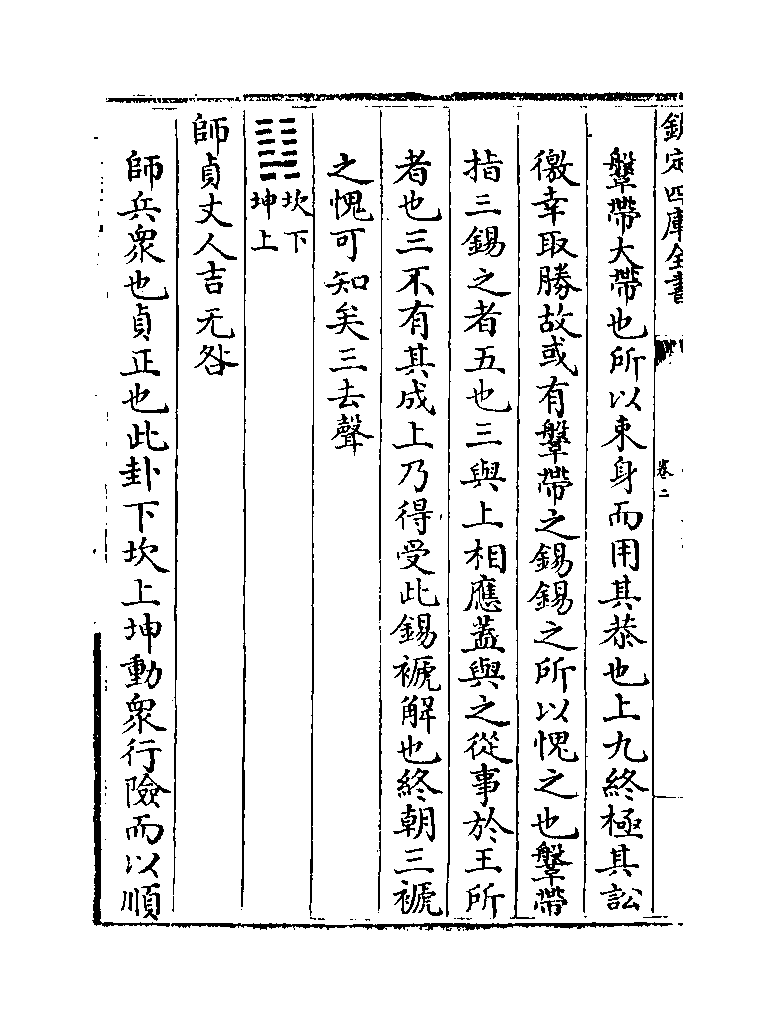 欽定四庫全書
卷二
鞶帶大帶也所以束身而用其恭也上九終極其訟
徼幸取勝故或有鞶帶之錫錫之所以愧之也鞶帶
指三錫之者五也三與上相應蓋與之從事於王所
者也三不有其成上乃得受此錫褫解也終朝三褫
之愧可知矣三去聲
坎下
坤上
師貞丈人吉无咎
師兵衆也貞正也此卦下坎上坤動衆行險而以順